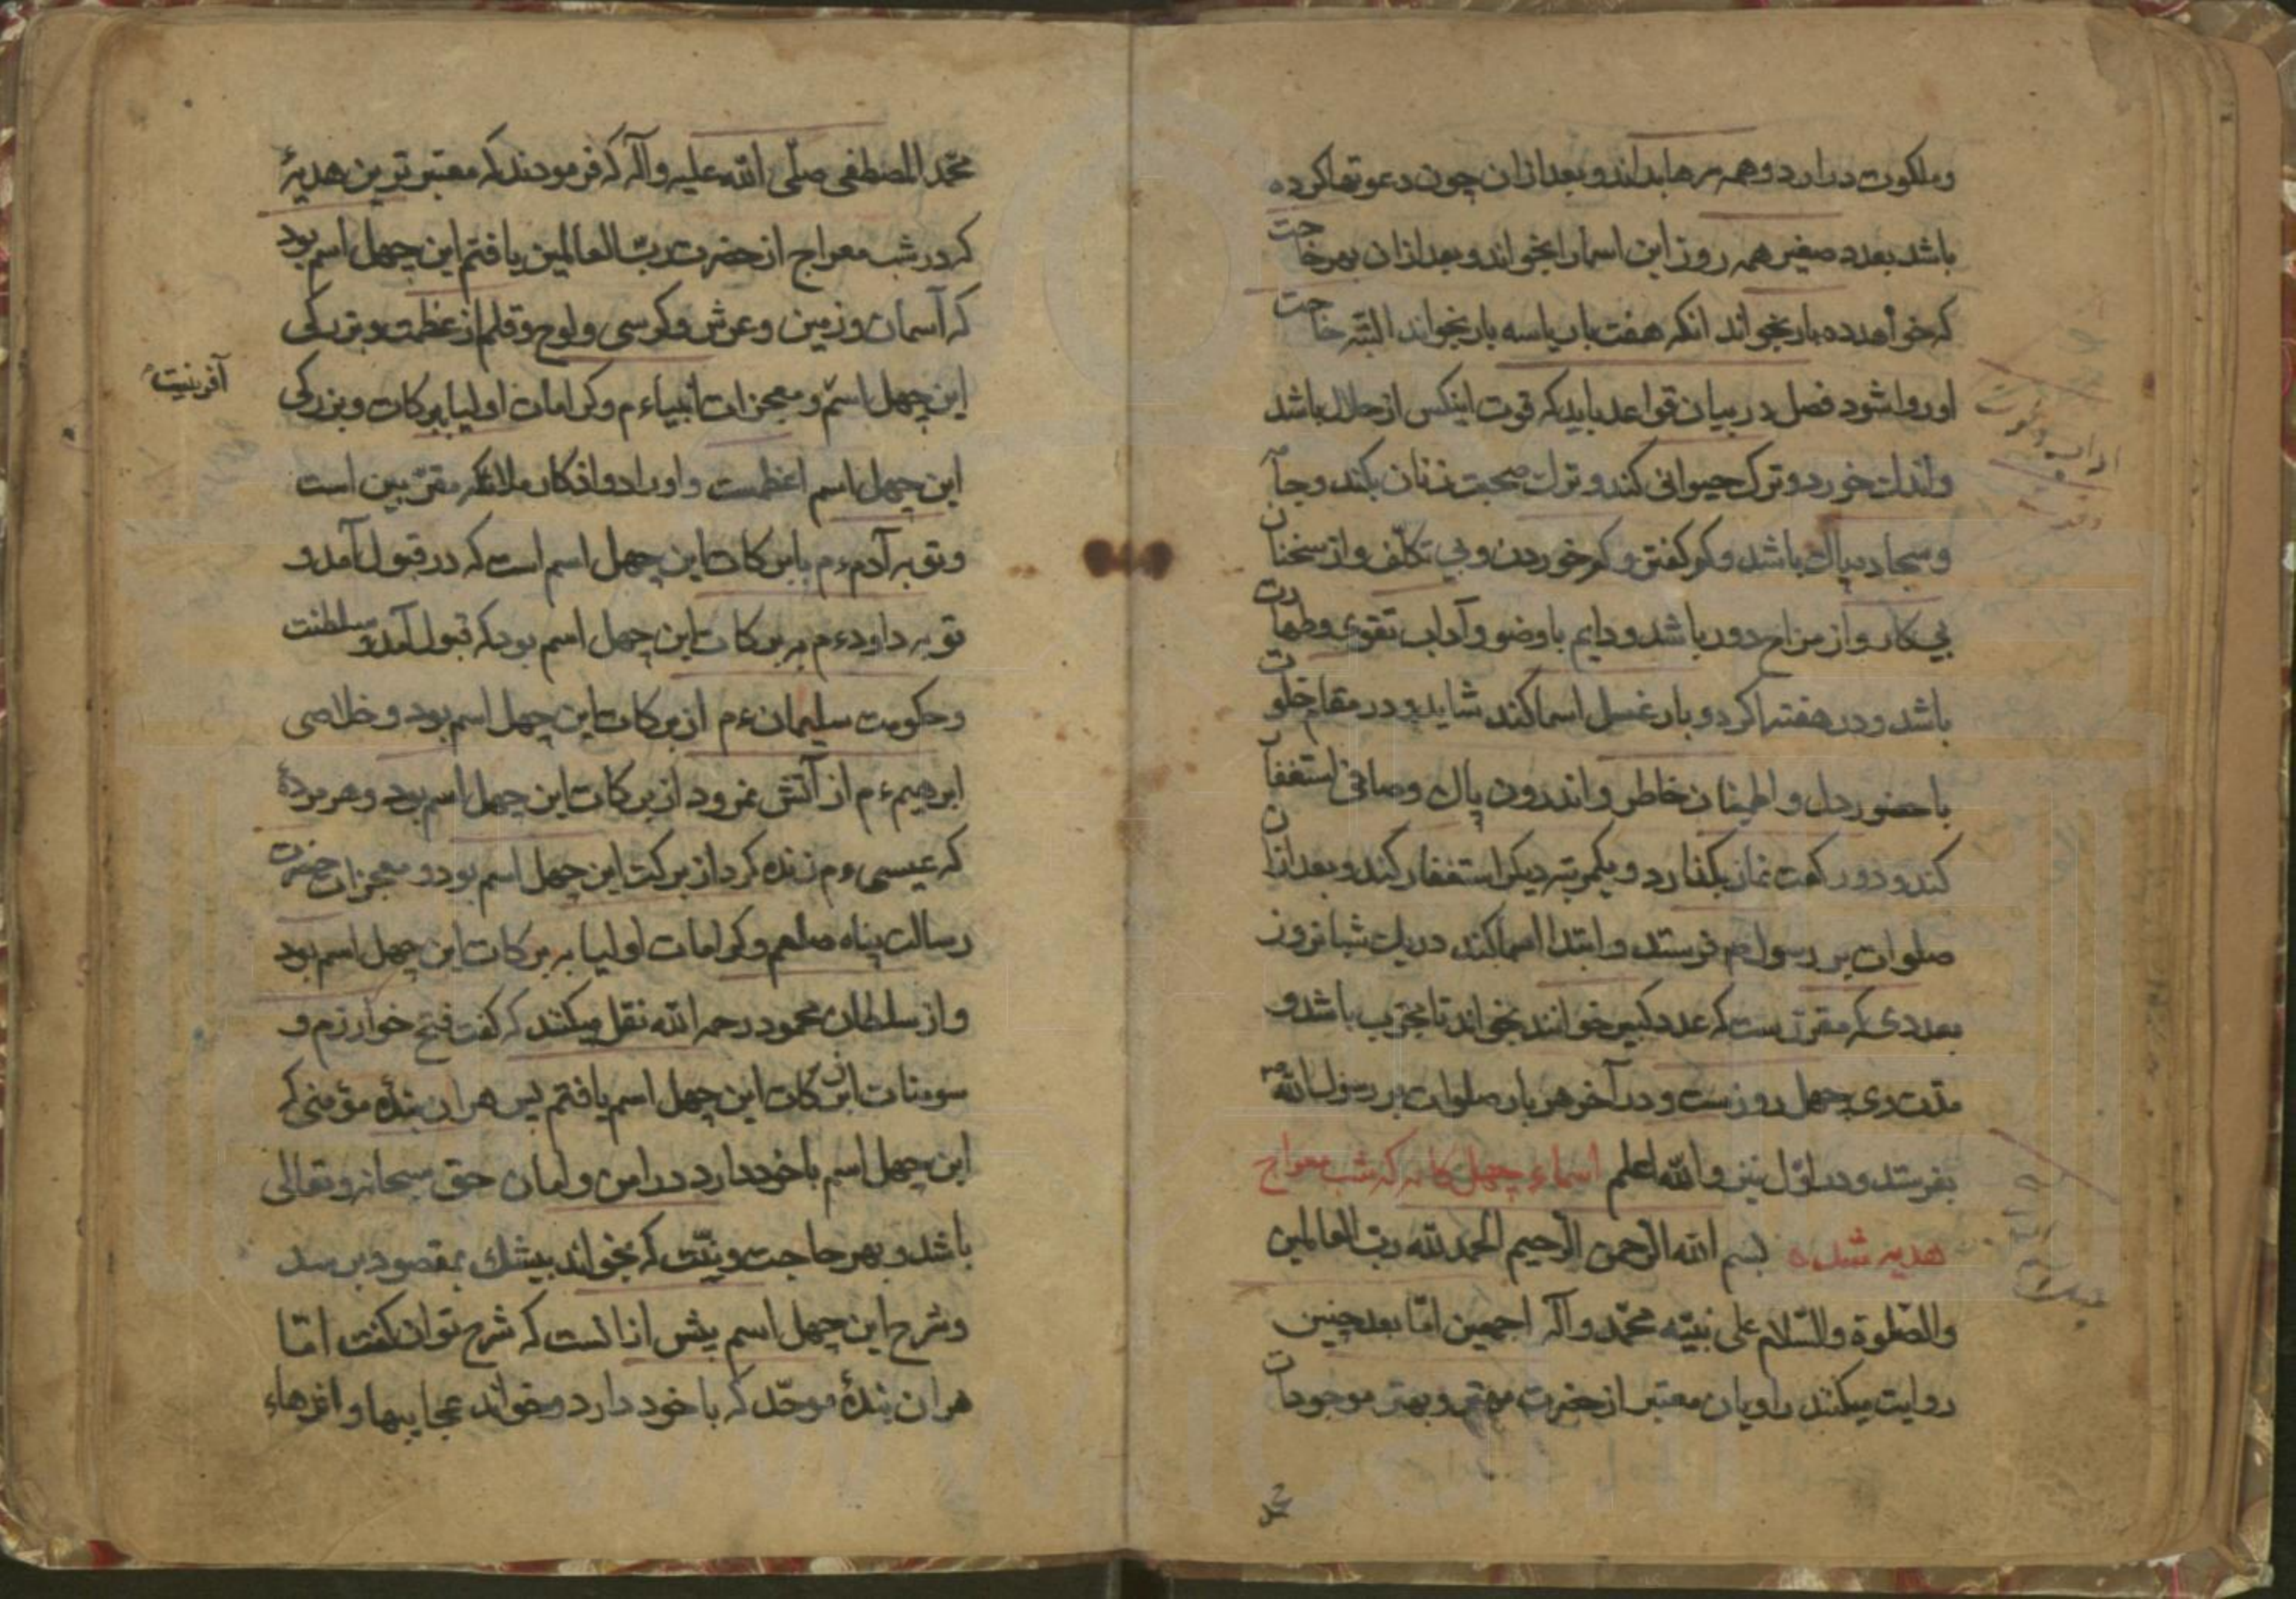 وملکوت درارد و همه سرها بداند و بعد ازان چون دعوتها کرده
باشد بعدد صغیر همه روز این اسما را بخواند و بعد ازان بهر حاجت
که خواهد ده بار بخواند انکه هفت بار یا سه بار بخواند البته حاجت
او روا شود فصل در بیان قواعد باید که قوت اینکس از حلال باشد
واندک خورد و ترک حیوانی کند و ترک صحبت زنان بکند و جامه
و سجاده پاک باشد و کم گفتن و کم خوردن و بی تکلّف و از سخنان
بی کار و از مزاح دور باشد و دایم با وضو و آداب تقوی و طهارت
باشد و در هفته اکر دو بار غسل اسما کند شاید و در مقام خلوت
با حضور دل و اطمینان خاطر و اندرون پاک و صافی استغفار
کند و دو رکعت نماز بگذارد و یکمرتبه دیگر استغفار کند و بعد ازان
صلوات بر رسول م فرستد و ابتدا اسما کند در یک شبانروز
بعددی که مقرّرست که عدد کبیر خوانند بخواند تا مجرّب باشد و
مدّت دی چهل روزست و در آخر هر بار صلوات بر رسول الله ص
بفرستد و در اوّل نیز والله اعلم اسماء چهل کانه که شب معراج
هدیه شده بسم الله الرحمن الرحیم الحمد لله ربّ العالمین
والصّلوة والسّلام علی نبیّه محمّد وآله اجمعین امّا بعد چنین
روایت میکنند راویان معتبر از حضرت مهتر و بهتر موجودات
محمد
محمّد المصطفی صلّی الله علیه وآله که فرمودند که معتبر ترین هدیهٔ
که در شب معراج از حضرت ربّ العالمین یافتم این چهل اسم بود
که آسمان و زمین و عرش و کرسی و لوح و قلم از عظمت و بزرکی
آفرینیت
این چهل اسم و معجزات انبیاء م و کرامات اولیا بر کات و بزرکی
این چهل اسم اعظمست و اوراد و اذکار ملائکه مقرّبین است
و توبه آدم ء م بابرکات این چهل اسم است که در قبول آمد و
توبه داود ء م به برکات این چهل اسم بود که قبول آمد و سلطنت
و حکومت سلیمان ء م از برکات این چهل اسم بود و خلاصی
ابرهیم ء م از آتش نمرود از برکات این چهل اسم بود و هر مردهٔ
که عیسی ء م زنده کرد از برکت این چهل اسم بود و معجزات حضرت
رسالت پناه صلعم و کرامات اولیا به برکات این چهل اسم بود
و از سلطان محمود رحمه الله نقل میکنند که کفت فتح خوارزم و
سومنات از برکات این چهل اسم یافتم پس هر ان بندهٔ مؤمنی که
این چهل اسم با خود دارد در امن و امان حق سبحانه و تعالی
باشد و بهر حاجت و نیّت که بخواند بیشک بمقصود برسد
و شرح این چهل اسم بیش ازانست که شرح توان کفت امّا
هر ان بندهٔ موحّد که با خود دارد و خواند عجایبها و اثرهاء